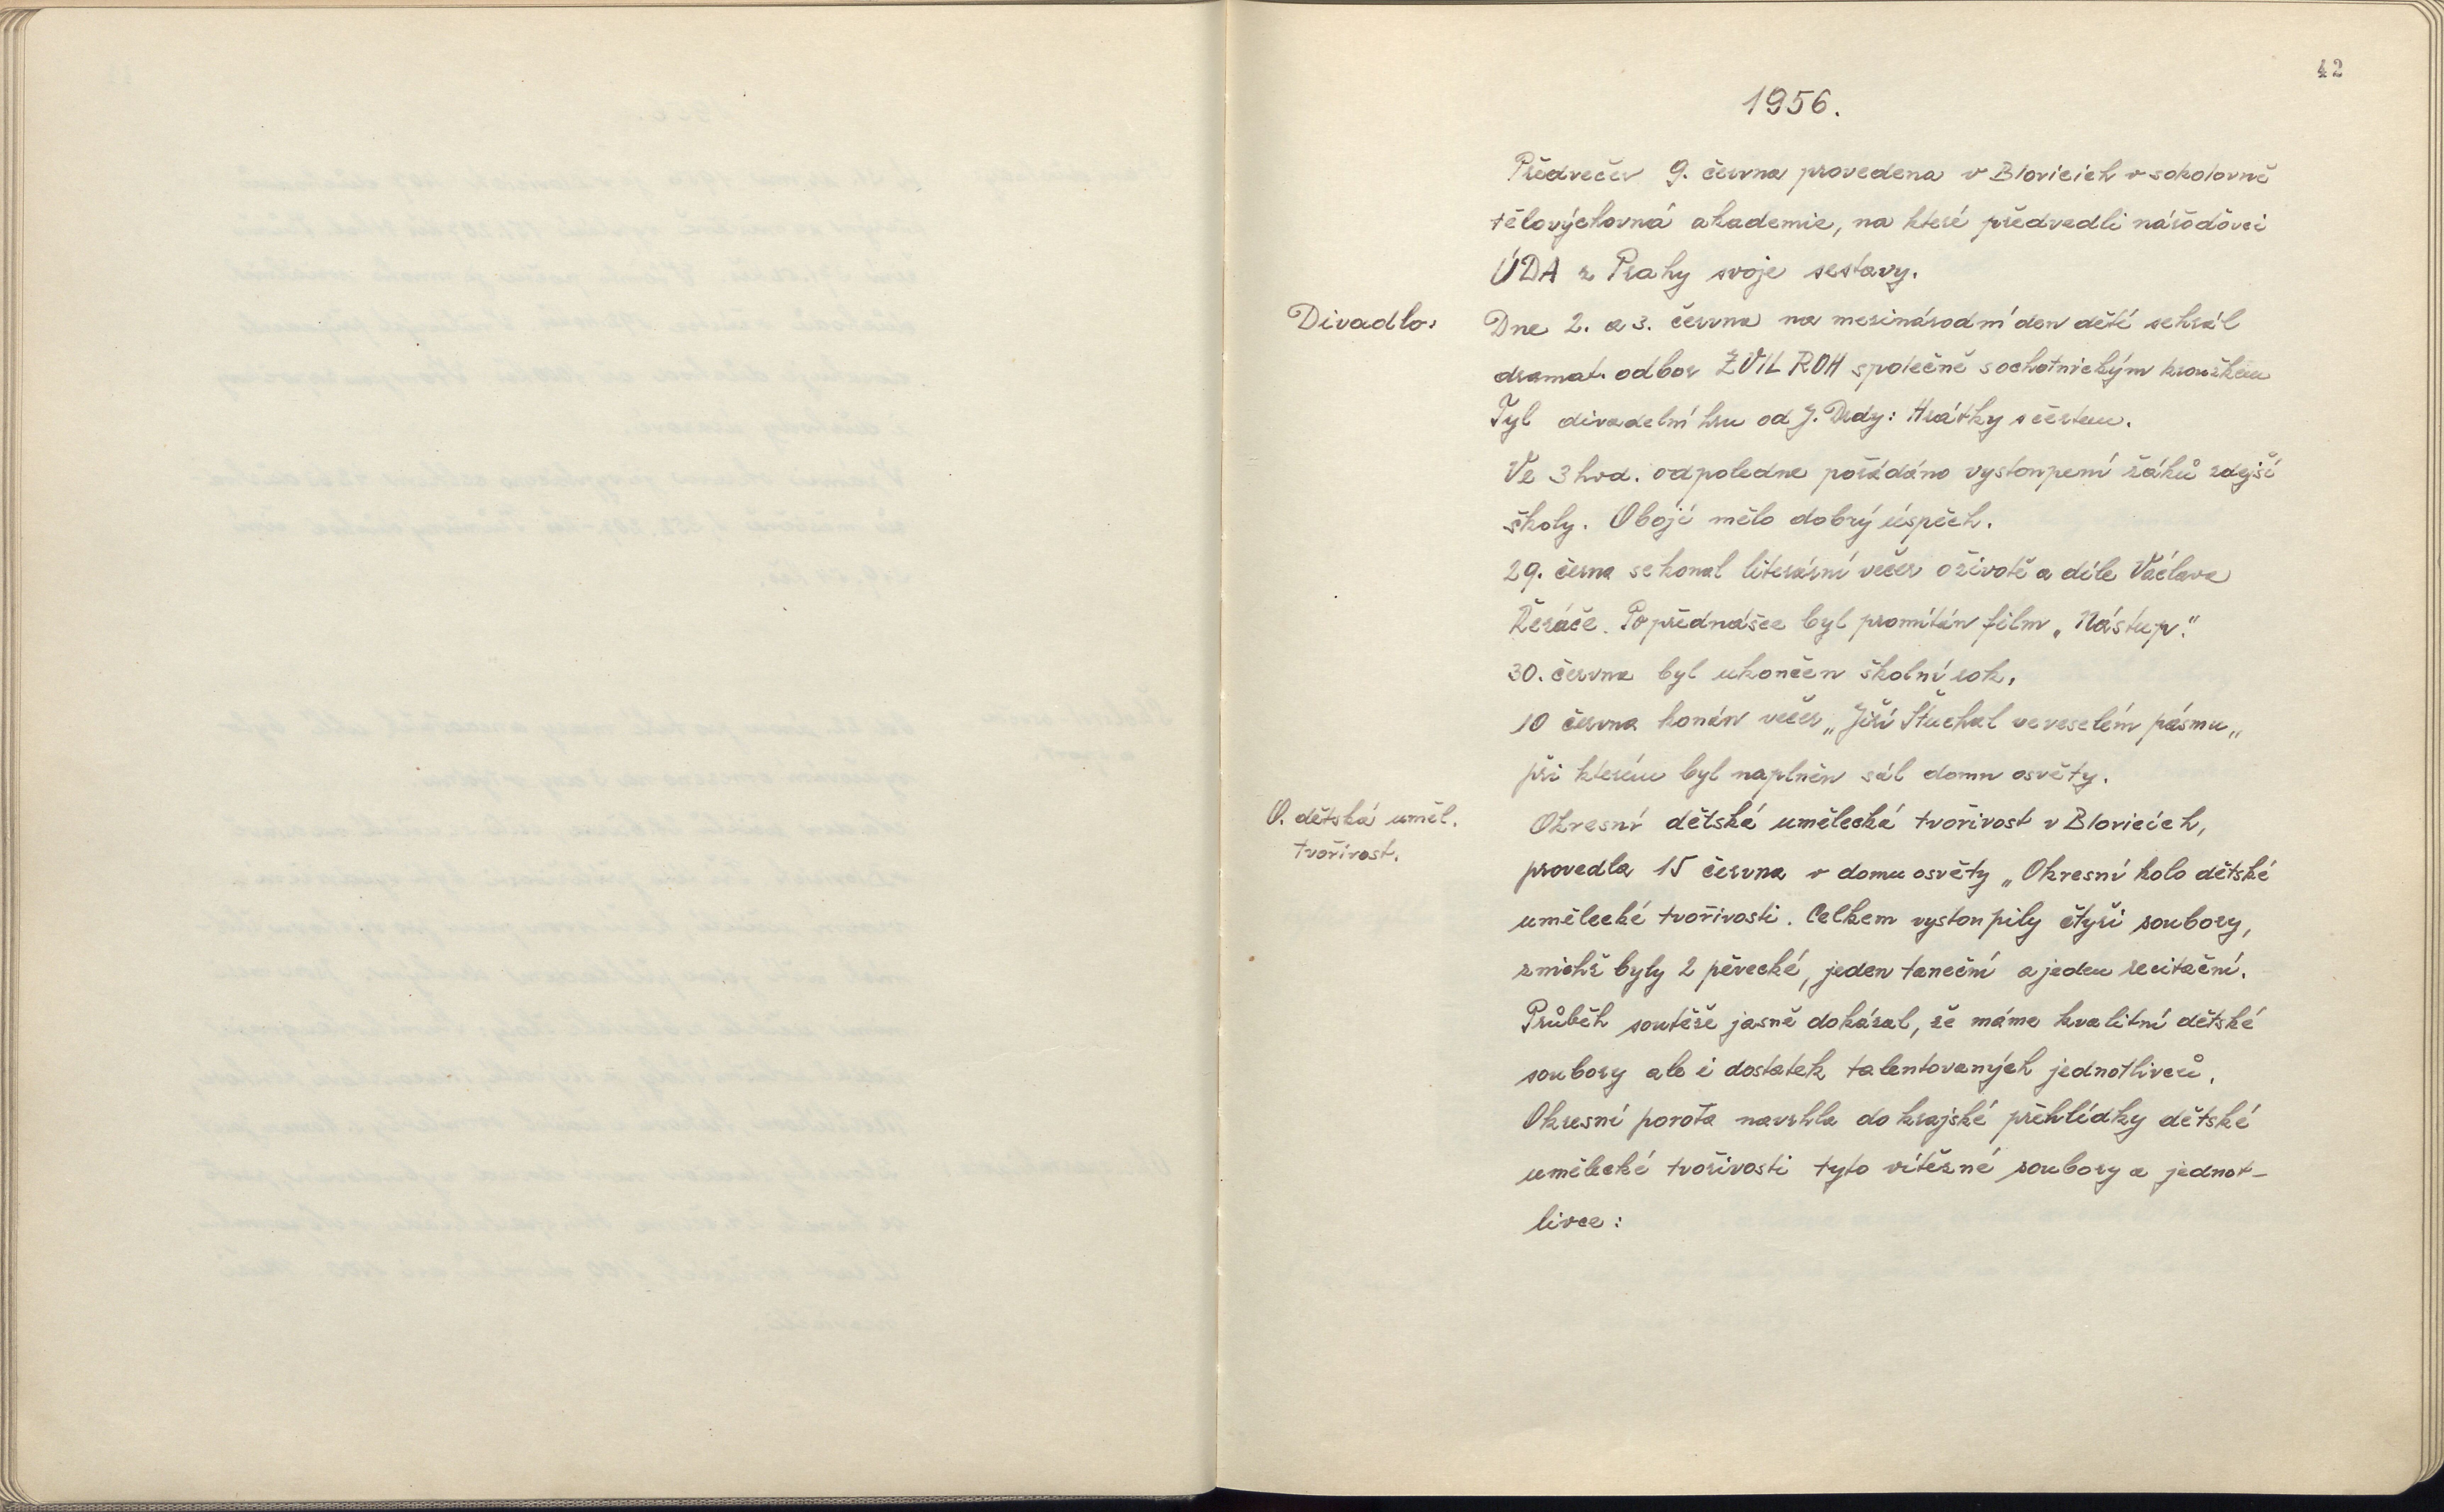 42
1956.
Předvečer 9. června provedena v Blovicích v sokolovně
tělovýchovná akademie, na které předvedli nářoďovci
ÚDA z Prahy svoje sestavy.
Divadlo: Dne 2. a 3. června na mezinárodní den dětí sehrál
dramat. odbor ZVIL ROH společně s ochotnickým kroužkem
Tyl divadelní hru od J. Drdy: Hrátky s čertem.
Ve 3 hod. odpoledne pořádáno vystoupení žáků zdejší
školy. Obojí mělo dobrý úspěch.
29. černa se konal literární večer o životě a díle Václava
Řezáče. Po přednášce byl promítán film „Nástup."
30. června byl ukončen školní rok.
10 června konán večer „Jiří Štuchal ve veselém pásmu„
při kterém byl naplněn sál domu osvěty.
O. dětská uměl. Okresní dětská umělecká tvořivost v Blovicích,
tvořivost.
provedla 15 června v domu osvěty „Okresní kolo dětské
umělecké tvořivosti. Celkem vystoupily čtyři soubory,
z nichž byly 2 pěvecké, jeden taneční a jeden recitační.
Průběh soutěže jasně dokázal, že máme kvalitní dětské
soubory ale i dostatek talentovaných jednotlivců.
Okresní porota navrhla do krajské přehlídky dětské
umělecké tvořivosti tyto vítězné soubory a jednot-
livce: